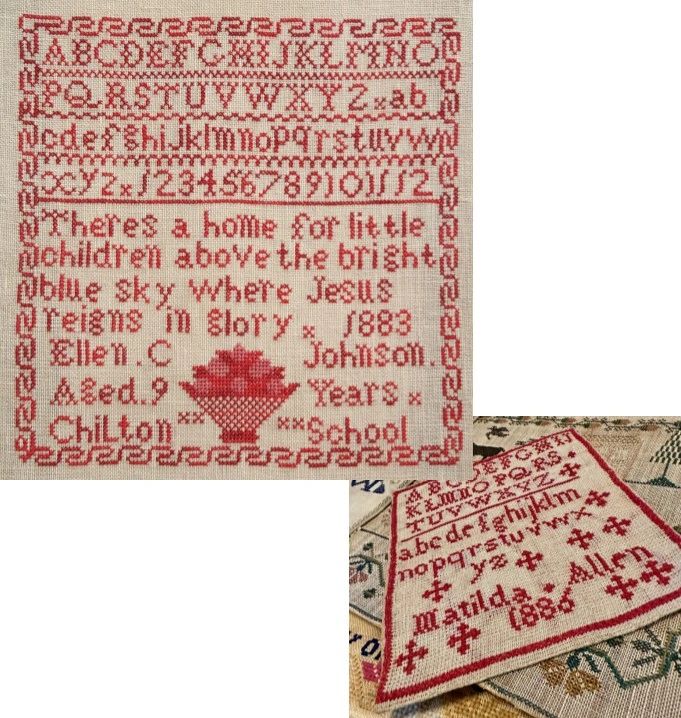 ABCDEFGHIJKLMNO
PQRSTUVWXYZxab
cdefghijklmnopqrstuvw
xyzx123456789101112
Theres a home for little
children above the bright
blue sky where Jesus
reigns in glory x 1883
Ellen.C Johnson.
Aged.9 Years x
Chilton xx xx School
ABCDEFGHIJ
KLMNOPQRS
TUVWXYZ
abcdefghijklm
nopqrstuvwx
yz
Matilda. Allen
1886